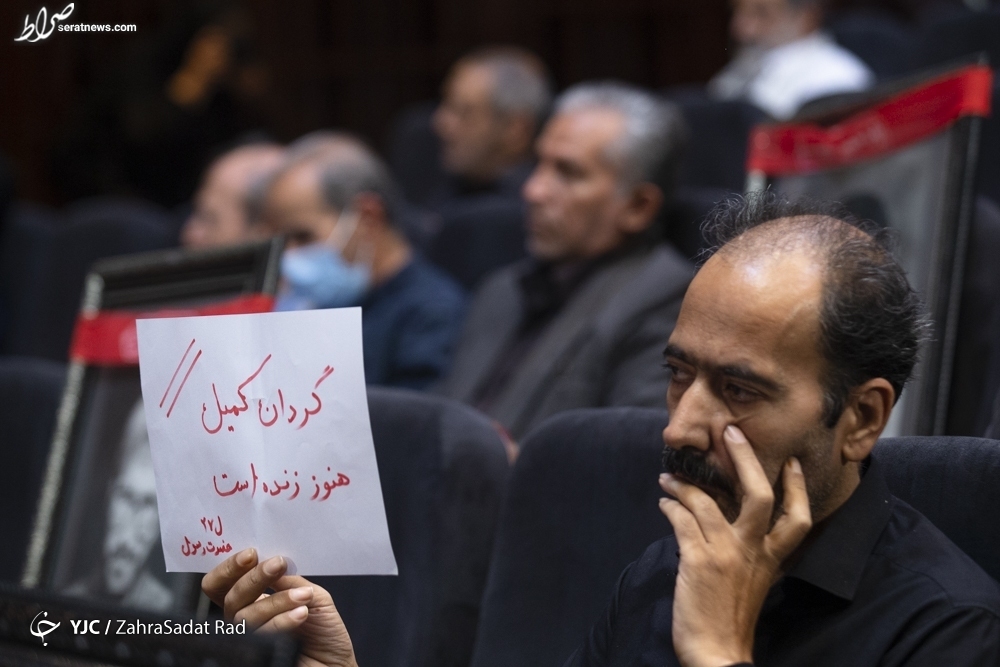 صراط
seratnews.com
گردان کمیل //
هنوز زنده است
ل ۲۷
حضرت رسول
YJC / ZahraSadat Rad